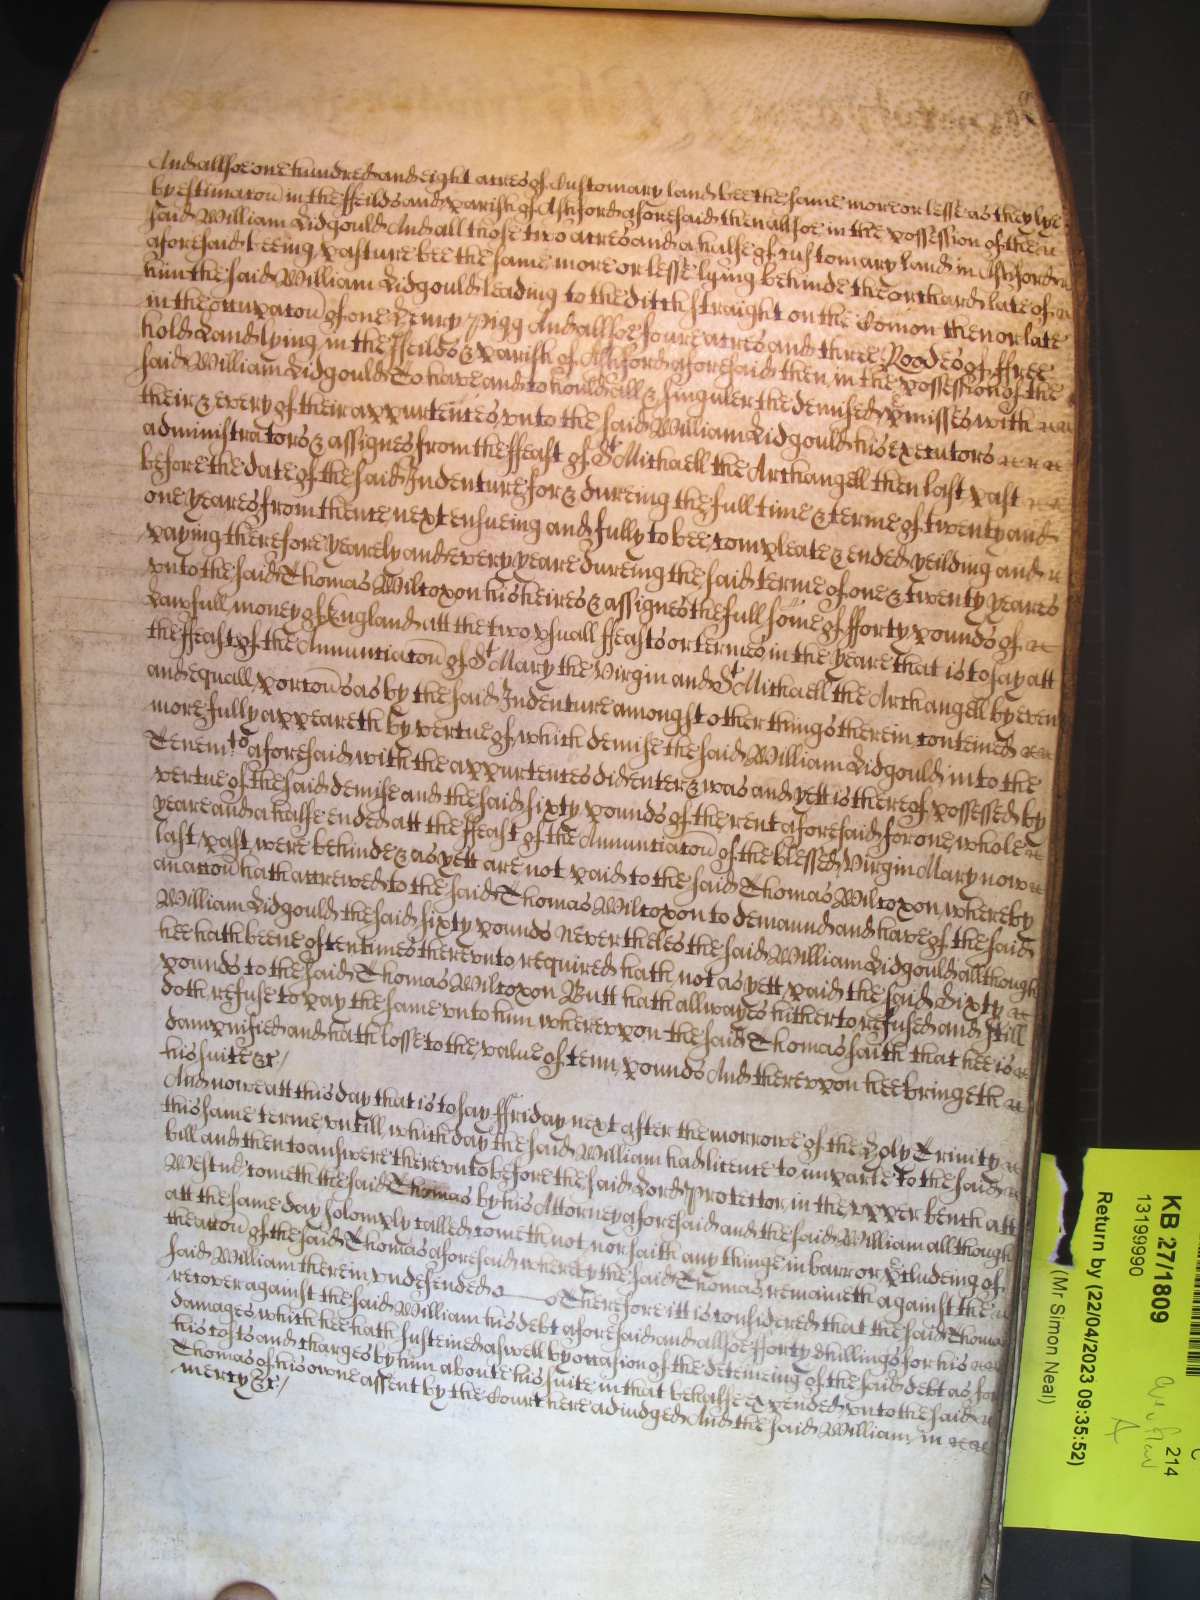 And allsoe one hundred and eight acres of Customary land bee the same more or lesse as they lye
by estimacon in the ffeilds and parish of Ashford aforesaid then allsoe in the possession of the
said William Lidgould And all those two acres and a halfe of customary land in Ashford
aforesaid beeing pasture bee the same more or lesse lying behinde the orchard late of
him the said William Lidgould leading to the ditch straight on the Comon then or late
in the occupacon of one Henry Pigg And allsoe foure acres and three Roodes of ffree
hold Land lying in the ffeilds & parish of Ashford aforesaid then in the possession of the
said William Lidgould To have and to hould all & singuler the demised pmisses with
their & every of their appurtences unto the said William Lidgould his executors
administrators & assignes from the ffeast of St Michaell the Archangell then last past
before the date of the said Indenture for & dureing the full time & terme of twenty and
one yeares from thence next ensueing and fully to bee compleate & ended yeilding and
paying therefore yearely and every yeare dureing the said terme of one & twenty yeares
unto the said Thomas Wilcoxon his heires & assignes the full some of fforty pounds of
Lawfull money of England att the two usuall ffeasts or termes in the yeare that is to say att
the ffeast of the Annunciacon of St Mary the Virgin and St Michaell the Archangell by even
and equall porcons as by the said Indenture amongst other things therein conteined
more fully appeareth by vertue of which demise the said William Lidgould into the
Tenemts aforesaid with the appurtences did enter & was and yett is thereof possessed by
vertue of the said demise and the said sixty pounds of the rent aforesaid for one whole
yeare and a halfe ended att the ffeast of the Annunciacon of the blessed Virgin Mary now
last past were behinde & as yett are not paid to the said Thomas Wilcoxon whereby
an accon hath accrewed to the said Thomas Wilcoxon to demaund and have of the said
William Lidgould the said sixty pounds Nevertheles the said William Lidgould allthough
hee hath beene oftentimes thereunto required hath not as yett paid the said Sixty
pounds to the said Thomas Wilcoxon Butt hath allwayes hitherto refused and still
doth refuse to pay the same unto him whereupon the said Thomas saith that hee is
dampnified and hath losse to the value of tenn pounds And thereupon hee bringeth
his suite &c/
And nowe att this day that is to say ffriday next after the morrowe of the Holy Trinity
this same terme untill which day the said William had licence to imparle to the said
bill and then to answere thereunto before the said Lord Protector in the upper bench att
Westmr cometh the said Thomas by his Attorney aforesaid and the said William allthough
att the same day solemply called cometh not nor saith any thinge in barr or pcludeing of
the accon of the said Thomas aforesaid whereby the said Thomas remaineth against the
said William therein undefended Therefore itt is considered that the said Thomas
recover against the said William his debt aforesaid and allsoe fforty shillings for his
damages which hee hath susteined aswell by occasion of the deteineing of the said debt as for
his costs and charges by him aboute his suite in that behalfe expended unto the said
Thomas of his owne assent by the Court here adiudged And the said William in
mercy &c/
KB 27/1809
13199990
Return by (22/04/2023 09:35:52)
(Mr Simon Neal)
214
A